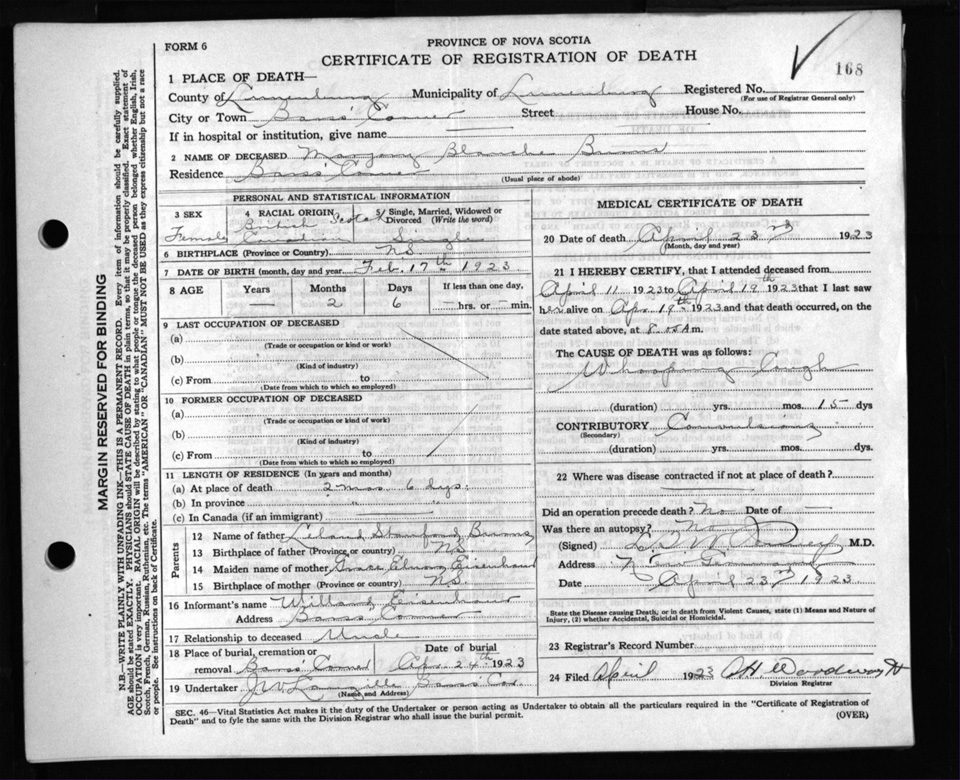 FORM 6
PROVINCE OF NOVA SCOTIA
CERTIFICATE OF REGISTRATION OF DEATH
168
1 PLACE OF DEATH—
County of Lunenburg Municipality of Lunenburg Registered No.
(For use of Registrar General only)
City or Town Barss' Corner Street House No.
If in hospital or institution, give name
2 NAME OF DECEASED Blanche
Residence Barss' Corner
(Usual place of abode)
PERSONAL AND STATISTICAL INFORMATION
3 SEX
Female
4 RACIAL ORIGIN
British Scotch
Canadian
5 Single, Married, Widowed or Divorced (Write the word)
Single
6 BIRTHPLACE (Province or Country) N.S.
7 DATE OF BIRTH (month, day and year) Feb. 17th 1923
8 AGE Years Months Days If less than one day,
— 2 6 — hrs. or — min.
9 LAST OCCUPATION OF DECEASED
(a)
(Trade or occupation or kind of work)
(b)
(Kind of industry)
(c) From to
(Date from which to which so employed)
10 FORMER OCCUPATION OF DECEASED
(a)
(Trade or occupation or kind of work)
(b)
(Kind of industry)
(c) From to
(Date from which to which so employed)
11 LENGTH OF RESIDENCE (In years and months)
(a) At place of death 2 mos 6 dys.
(b) In province " "
(c) In Canada (if an immigrant)
Parents
12 Name of father Leland Stamford
13 Birthplace of father (Province or country) N.S.
14 Maiden name of mother Grace Eisenhaur
15 Birthplace of mother (Province or country) N.S.
16 Informant's name Willard Eisenhaur
Address Barss Corner
17 Relationship to deceased Uncle
18 Place of burial, cremation or removal Barss' Corner
Date of burial Apr 24th 1923
19 Undertaker Barss' Cor
(Name and Address)
MEDICAL CERTIFICATE OF DEATH
20 Date of death April 23rd 1923
(Month, day and year)
21 I HEREBY CERTIFY, that I attended deceased from
April 11 1923 to April 19th 1923 that I last saw
her alive on Apr. 19th 1923 and that death occurred, on the
date stated above, at 8.05 A m.
The CAUSE OF DEATH was as follows:
Whooping Cough
(duration) yrs. mos. 15 dys
CONTRIBUTORY Convulsions
(Secondary)
(duration) yrs. mos. dys.
22 Where was disease contracted if not at place of death?
Did an operation precede death? No Date of —
Was there an autopsy? No
(Signed) M.D.
Address New Germany
Date April 23rd 1923
State the Disease causing Death, or in death from Violent Causes, state (1) Means and Nature of Injury, (2) whether Accidental, Suicidal or Homicidal.
23 Registrar's Record Number
24 Filed April 1923
Division Registrar
SEC. 46—Vital Statistics Act makes it the duty of the Undertaker or person acting as Undertaker to obtain all the particulars required in the "Certificate of Registration of
Death" and to fyle the same with the Division Registrar who shall issue the burial permit. (OVER)
MARGIN RESERVED FOR BINDING
N.B.—WRITE PLAINLY WITH UNFADING INK—THIS IS A PERMANENT RECORD. Every item of information should be carefully supplied.
AGE should be stated EXACTLY. PHYSICIANS should STATE CAUSE OF DEATH in plain terms, so that it may be properly classified. Exact statement of
OCCUPATION is very important. RACIAL ORIGIN will be described by stating to what people or tongue the deceased person belonged whether English, Irish,
Scotch, French, German, Russian, Ruthenian, etc. The terms "AMERICAN" OR "CANADIAN" MUST NOT BE USED as they express citizenship but not a race
or people. See instructions on back of Certificate.